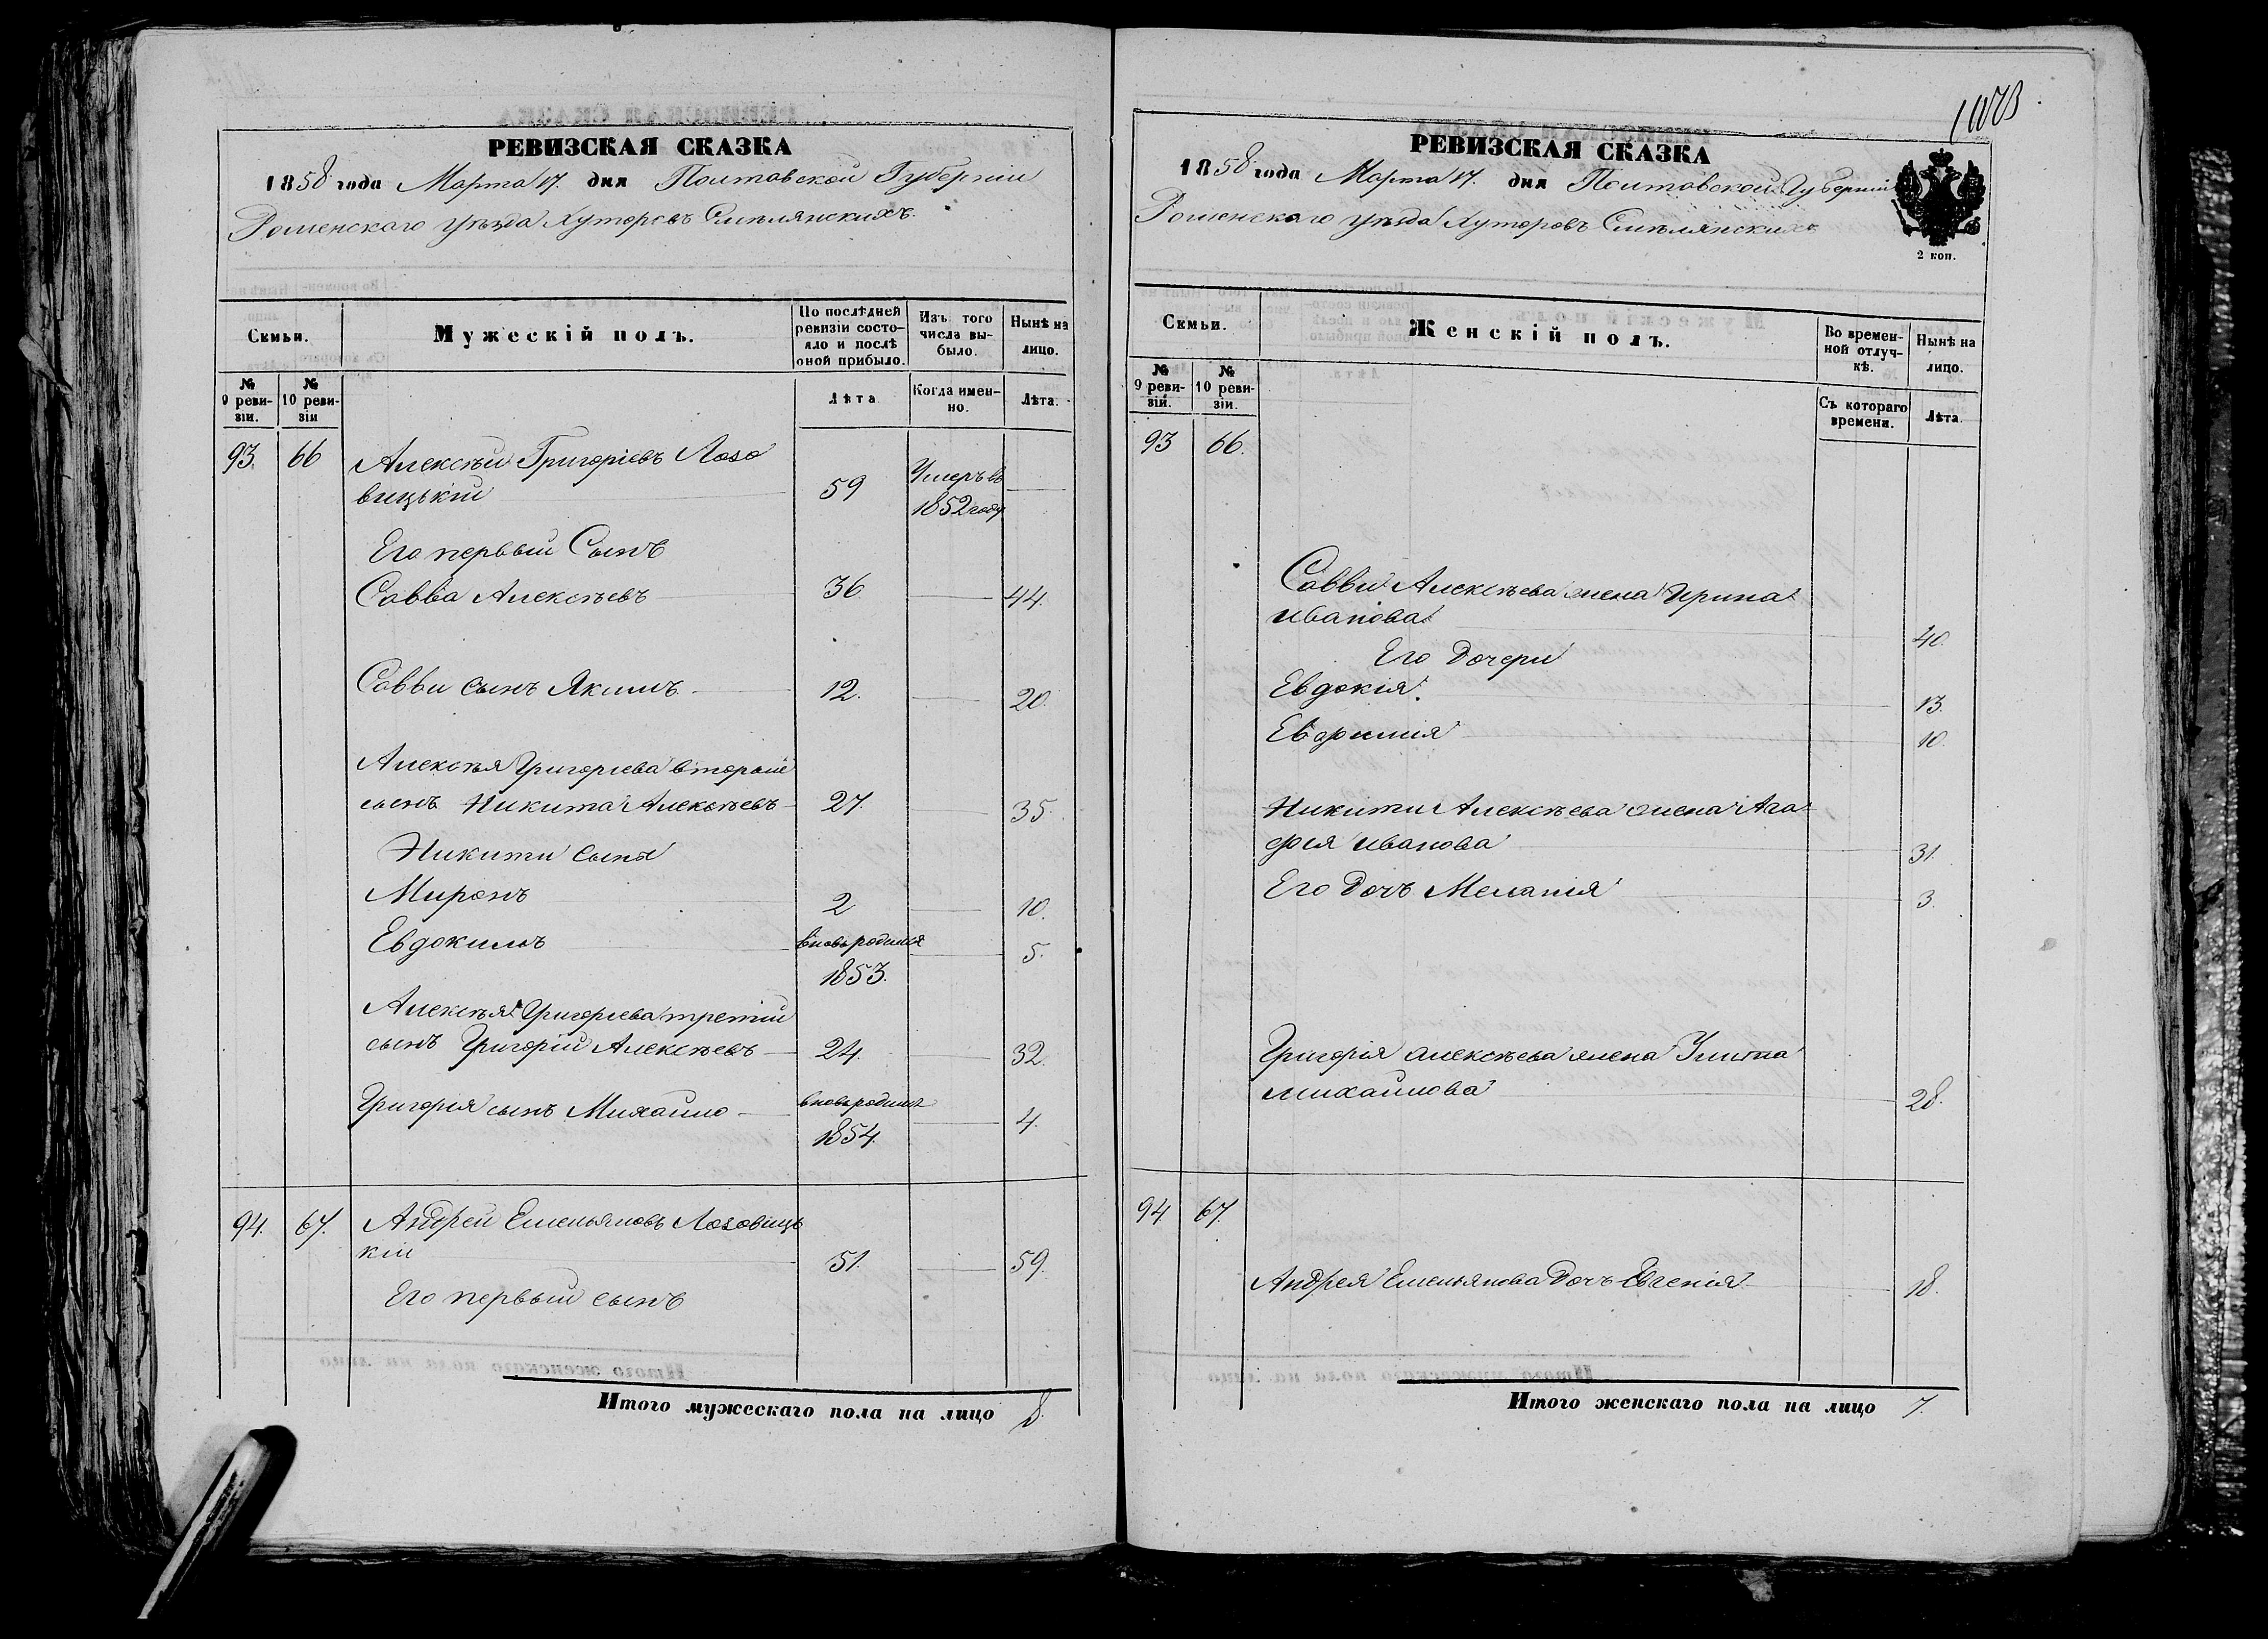 РЕВИЗСКАЯ СКАЗКА
1858 года Марта 17. дня Полтавской Губерніи
Роменского уѣзда Хуторовъ Смѣлянскихъ.
Семьи.
Мужескій полъ.
По послѣдней ревизіи состояло и послѣ оной прибыло.
Изъ того числа выбыло.
Нынѣ на лицо.
№ 9 ревизіи.
№ 10 ревизіи
Лѣта
Когда именно.
Лѣта.
93. 66 Алексѣй Григоріевъ Лозо
вицькій 59 Умеръ въ 1852 году
Его первый Сынъ
Савва Алексѣевъ 36 44.
Савви сынъ Якимъ 12. 20.
Алексѣя Григоріева вторый
сынъ Никита Алексѣевъ 27. 35.
Никити сыны
Миронъ 2 10.
Евдокимъ вновь родился 1853. 5.
Алексѣя Григоріева третій
сынъ Григорій Алексѣевъ 24. 32.
Григорія сынъ Михайло вновь родился 1854. 4.
94. 67. Андрей Емельяновъ Лозовицъ
кій 51. 59.
Его первый сынъ
Итого мужескаго пола на лицо 8.
РЕВИЗСКАЯ СКАЗКА
1858 года Марта 17. дня Полтавской Губерніи
Роменского уѣзда Хуторовъ Смѣлянскихъ
2 коп.
Семьи.
Женскій полъ.
Во временной отлучкѣ.
Нынѣ на лицо.
№ 9 ревизіи.
№ 10 ревизіи.
Съ котораго времени.
Лѣта.
93 66.
Савви Алексѣева жена Ирина
Иванова 40.
Его Дочери
Евдокія. 13.
Евфимія 10.
Никити Алексѣева жена Ага
фія Иванова 31.
Его Дочъ Меланія 3.
Григорія Алексѣева жена Улита
Михайлова 28.
94. 67.
Андрея Емельянова Дочъ Евгенія 18.
Итого женскаго пола на лицо 7.